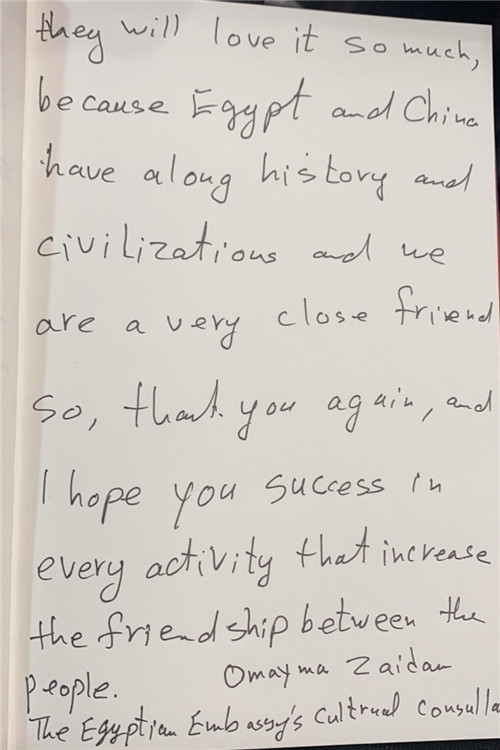 they will love it so much,
because Egypt and China
have along history and
civilizations and we
are a very close friend
so, thank you again, and
I hope you success in
every activity that increase
the friendship between the
people. Omayma Zaidan
The Egyptian Embassy's Cultrual Consulla